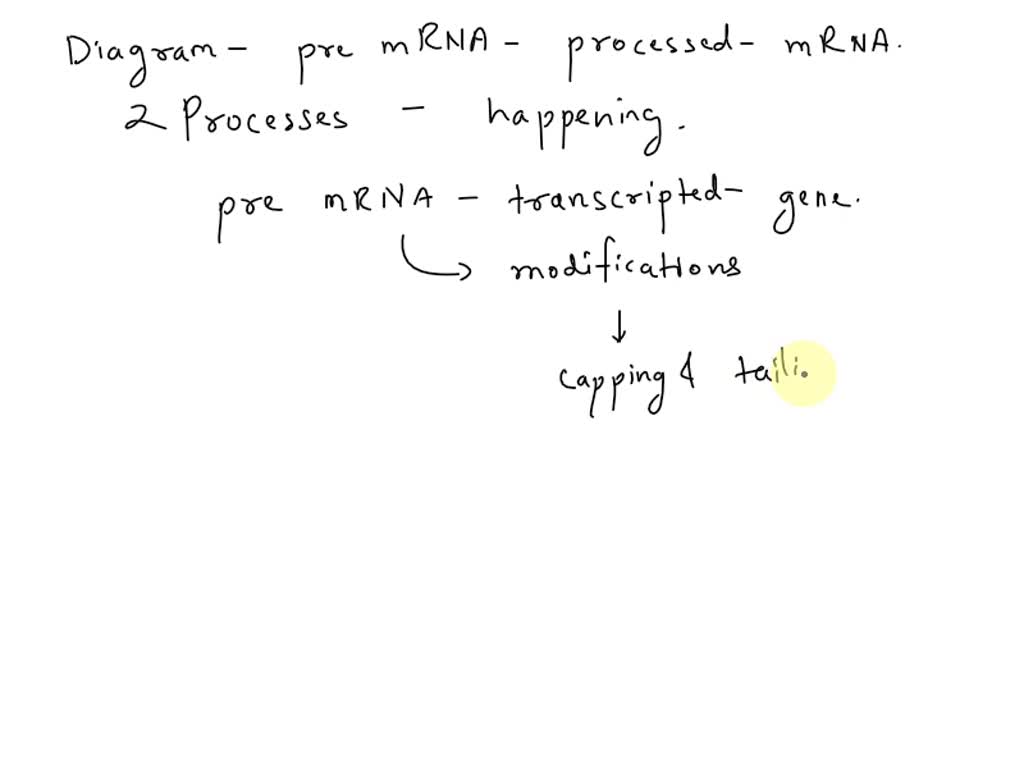 Diagram - pre mRNA - processed - mRNA.
2 Processes - happening.
pre mRNA - transcripted - gene.
modifications
capping & taili